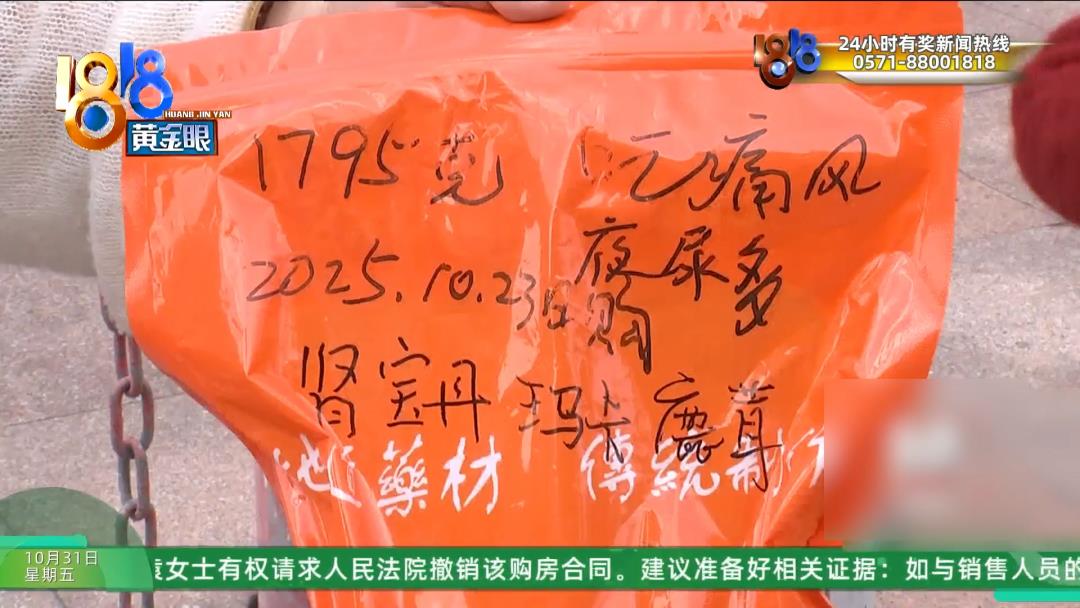 1818
HUANG JIN YAN
黄金眼
1818
24小时有奖新闻热线
0571-88001818
1795克 吃痛风
2025.10.23日购 夜尿多
肾宝丹 玛卡 鹿茸
地藥材 傳統制
10月31日
星期五
袁女士有权请求人民法院撤销该购房合同。建议准备好相关证据：如与销售人员的